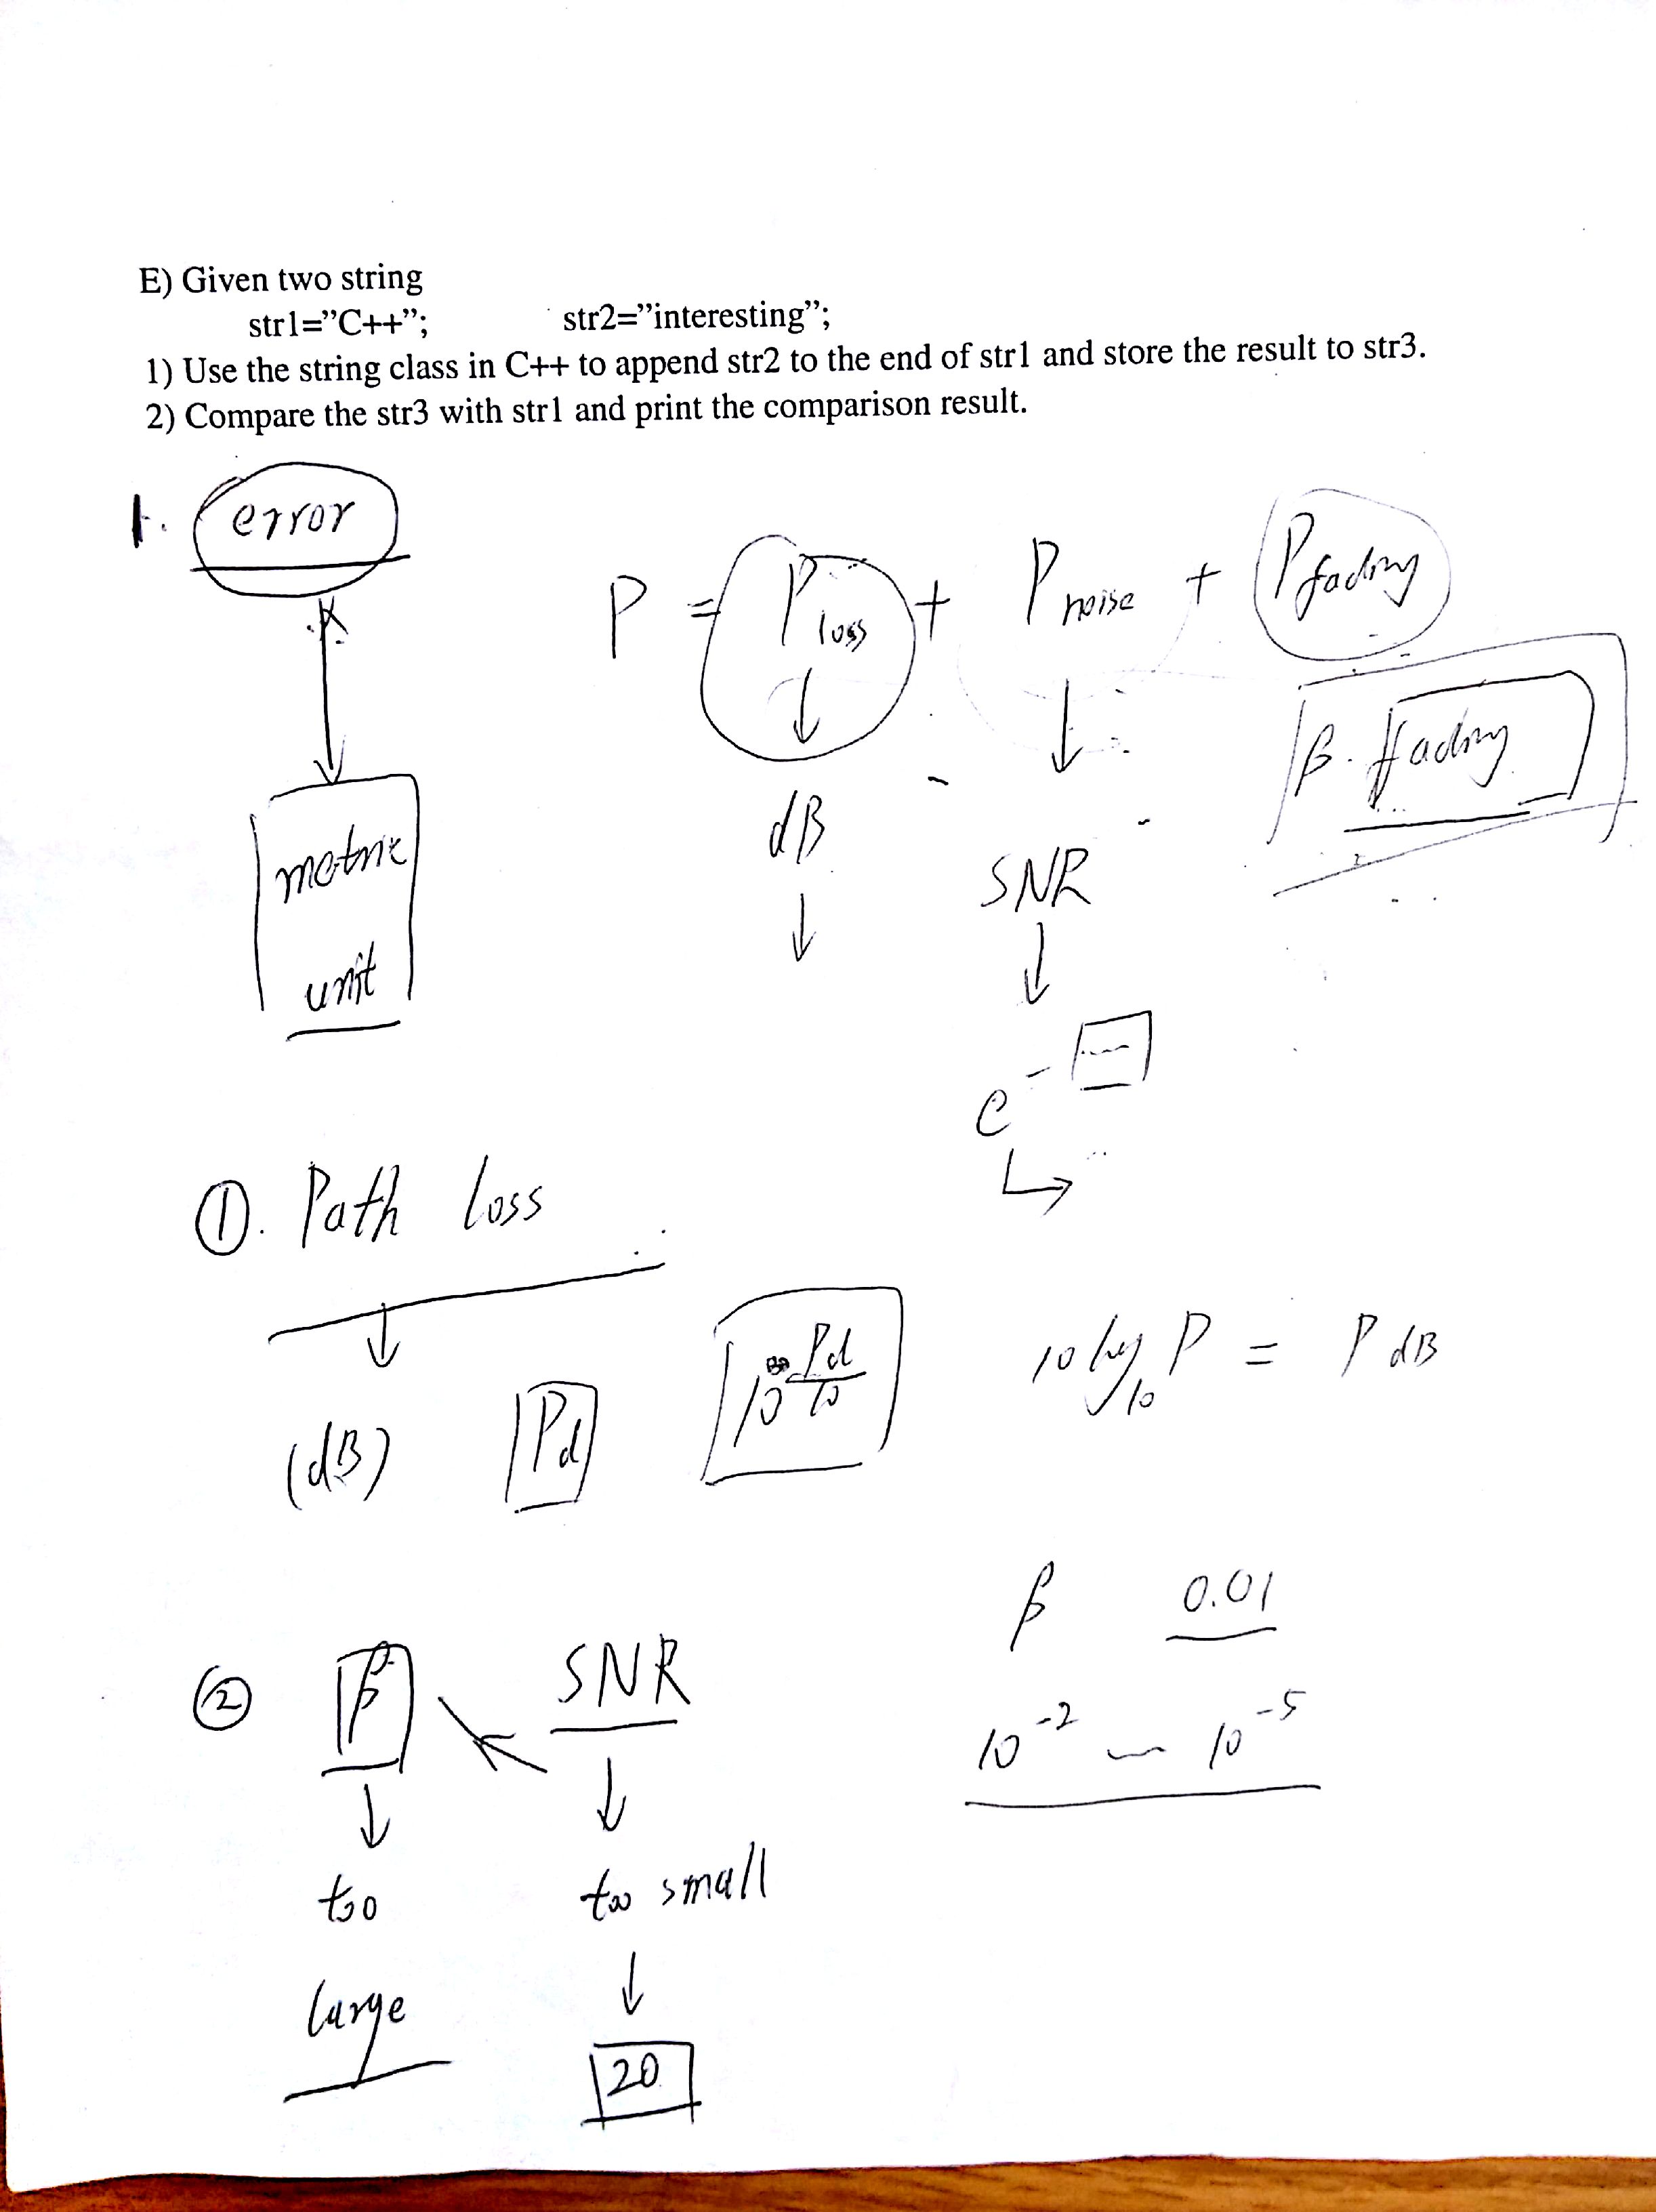 E) Given two string
str1=”C++”; str2=”interesting”;
1) Use the string class in C++ to append str2 to the end of str1 and store the result to str3.
2) Compare the str3 with str1 and print the comparison result.
1. error
P = P loss + P noise + P fading
β. fading
metric
unit
dB
SNR
e -
①. Path loss
(dB) Pd 10 Pd/10 10 log10 P = P dB
β 0.01
② β SNR
10^-2 ~ 10^-5
too too small
large
20